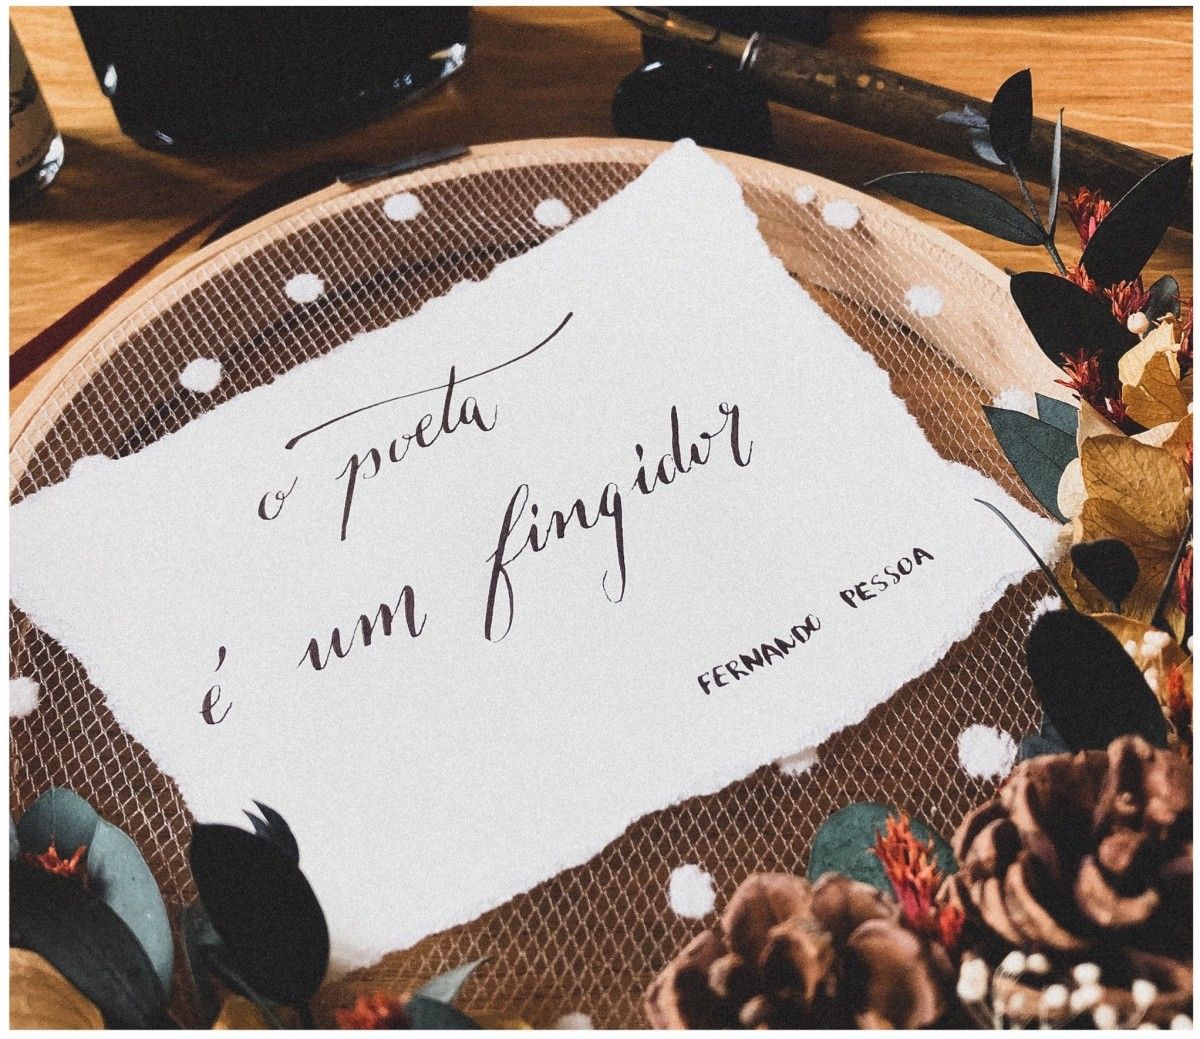 o poeta
é um fingidor
FERNANDO PESSOA